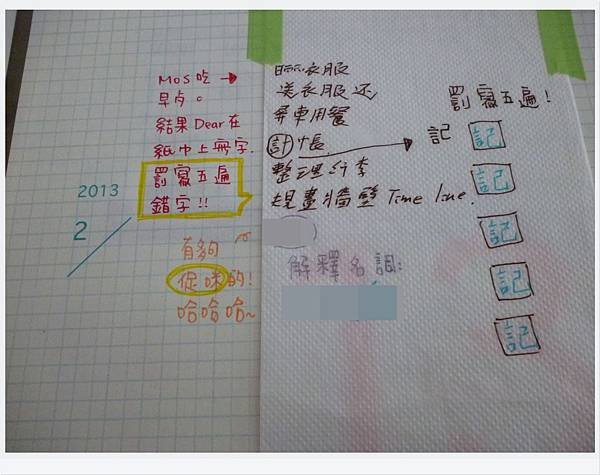 2013
2
MOS吃 →
早点。
結果 Dear 在
紙巾上寫字.
罰寫五遍
錯字!!
有夠
促咪的!
哈哈哈~
衣服
送衣服还
屏東用餐
計帳
整理行李
規畫牆壁 Time line.
解釋名詞:
罰寫五遍!
記
記
記
記
記
記